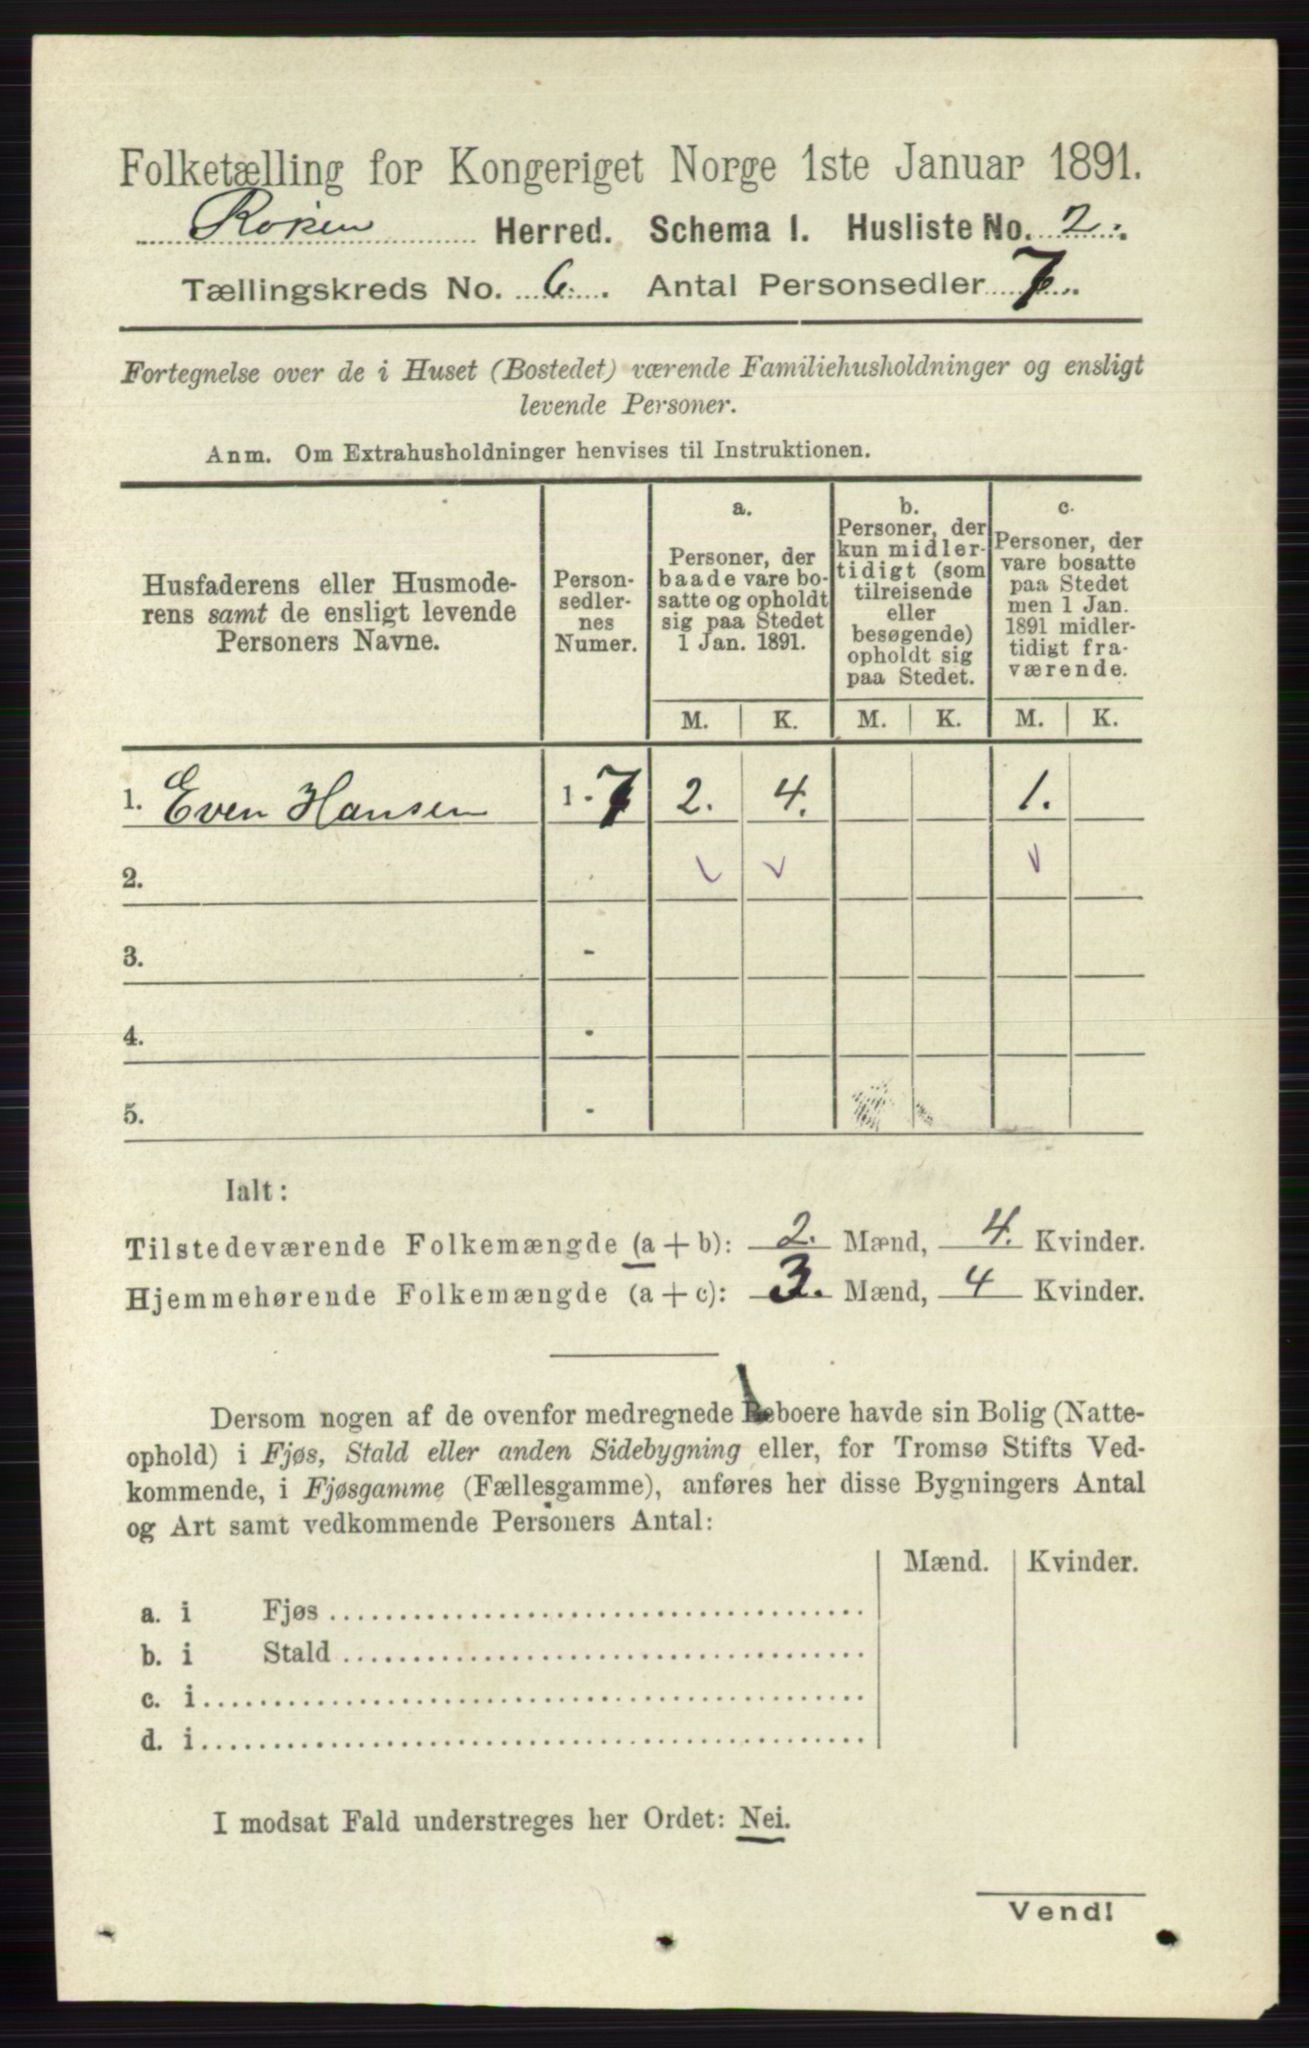 Folketælling for Kongeriget Norge 1ste Januar 1891.
Røken Herred. Schema 1. Husliste No. 2.
Tællingskreds No. 6. Antal Personsedler 7.
Fortegnelse over de i Huset (Bostedet) værende Familiehusholdninger og ensligt
levende Personer.
Anm. Om Extrahusholdninger henvises til Instruktionen.
Husfaderens eller Husmode-
rens samt de ensligt levende
Personers Navne.
Person-
sedler-
nes
Numer.
a.
Personer, der
baade vare bo-
satte og opholdt
sig paa Stedet
1 Jan. 1891.
b.
Personer, der
kun midler-
tidigt (som
tilreisende
eller
besøgende)
opholdt sig
paa Stedet.
c.
Personer, der
vare bosatte
paa Stedet
men 1 Jan.
1891 midler-
tidigt fra-
værende.
M. K. M. K. M. K.
1. Even Hansen 1 - 7 2. 4. 1.
2.
3. -
4. -
5. -
Ialt:
Tilstedeværende Folkemængde (a + b): 2. Mænd, 4. Kvinder.
Hjemmehørende Folkemængde (a + c): 3. Mænd, 4 Kvinder.
Dersom nogen af de ovenfor medregnede Beboere havde sin Bolig (Natte-
ophold) i Fjøs, Stald eller anden Sidebygning eller, for Tromsø Stifts Ved-
kommende, i Fjøsgamme (Fællesgamme), anføres her disse Bygningers Antal
og Art samt vedkommende Personers Antal:
Mænd. Kvinder.
a. i Fjøs
b. i Stald
c. i
d. i
I modsat Fald understreges her Ordet: Nei.
Vend!